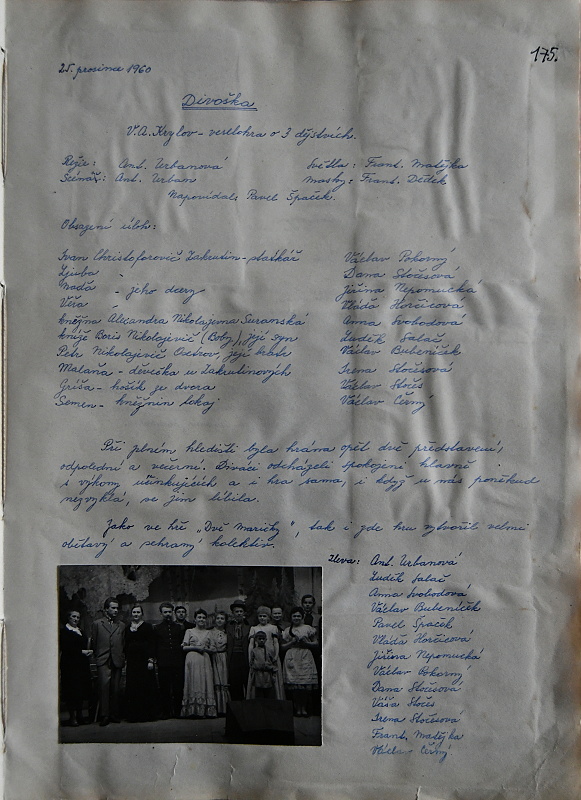 175.
25. prosince 1960
Divoška
V. A. Krylov - veselohra o 3 dějstvích.
Režie: Ant. Urbanová Světla: Frant. Matějka
Scénář: Ant. Urban masky: Frant. Dědek
Napovídal: Pavel Špaček.
Obsazení úloh:
Ivan Christoforovič Zakrutin - statkář Václav Pokorný
Ljuba Dana Stočesová
Naďa - jeho dcery Jiřina Nepomucká
Věra Vláďa Horčicová
kněžna Alexandra Nikolajevna Anna Svobodová
kníže Boris Nikolajevič (Boby), její syn Luděk Salač
Petr Nikolajevič Ostrov, její bratr Václav Bubeníček
Malaňa - děvečka u Zakrutinových Irena Stočesová
Gríša - hošík ze dvora Václav Stočes
Semen - kněžnin lokaj Václav Černý
Při plném hledišti byla hrána opět dvě představení,
odpolední a večerní. Diváci odcházeli spokojeni hlavně
s výkony účinkujících a i hra sama, i když u nás poněkud
nezvyklá, se jim líbila.
Jako ve hře "Dvě Maričky", tak i zde hru vytvořil velmi
obětavý a sehraný kolektiv.
Zleva: Ant. Urbanová
Luděk Salač
Anna Svobodová
Václav Bubeníček
Pavel Špaček
Vláďa Horčicová
Jiřina Nepomucká
Václav Pokorný
Dana Stočesová
Váša Stočes
Irena Stočesová
Frant. Matějka
Václav Černý.